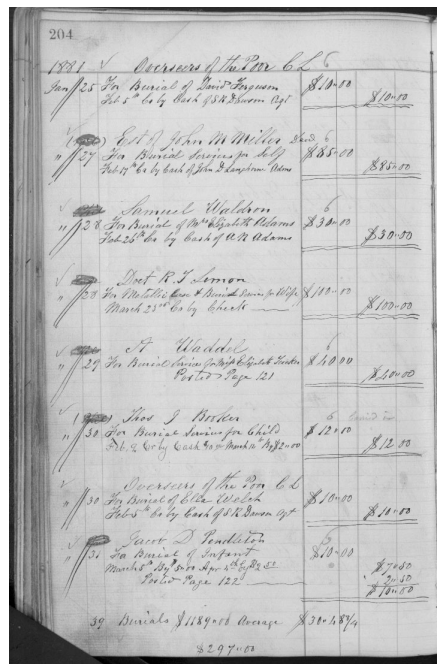 204
1881 Overseers of the Poor C L 6
Jan 25 For Burial of David Ferguson $10.00
Feb 5th Cr by Cash of S R Dawson Agt $10.00
Est of John M Miller Decd 6
" 27 For Burial Services for Self $85.00
Feb 17th Cr by Cash of John D Langhorne Adms $85.00
Samuel Waldron 6
" 28 For Burial of Mrs Elizabeth Adams $30.00
Feb 26th Cr by Cash of A R Adams $30.00
Doct R. T Lemon
" 28 For Metallic Case & Burial Service for Wife $100.00
March 23rd Cr by Check $100.00
A Waddel 6
" 29 For Burial Services for Elizabeth $40.00
Posted Page 121 $40.00
Thos J Booker 6
" 30 For Burial Services for Child $12.00
Feb. 9 Cr by Cash March $2.00 $12.00
Overseers of the Poor C L
" 30 For Burial of Ella Welch $10.00
Feb 5th Cr by Cash of S R Dawson Agt $10.00
Jacob D Pendleton 6
" 31 For Burial of Infant $10.00
March 5th By 5.00 Apr 2.50 $7.50
Posted Page 122 2.50
$10.00
39 Burials $1189.00 Average $30.48 3/4
$297.00